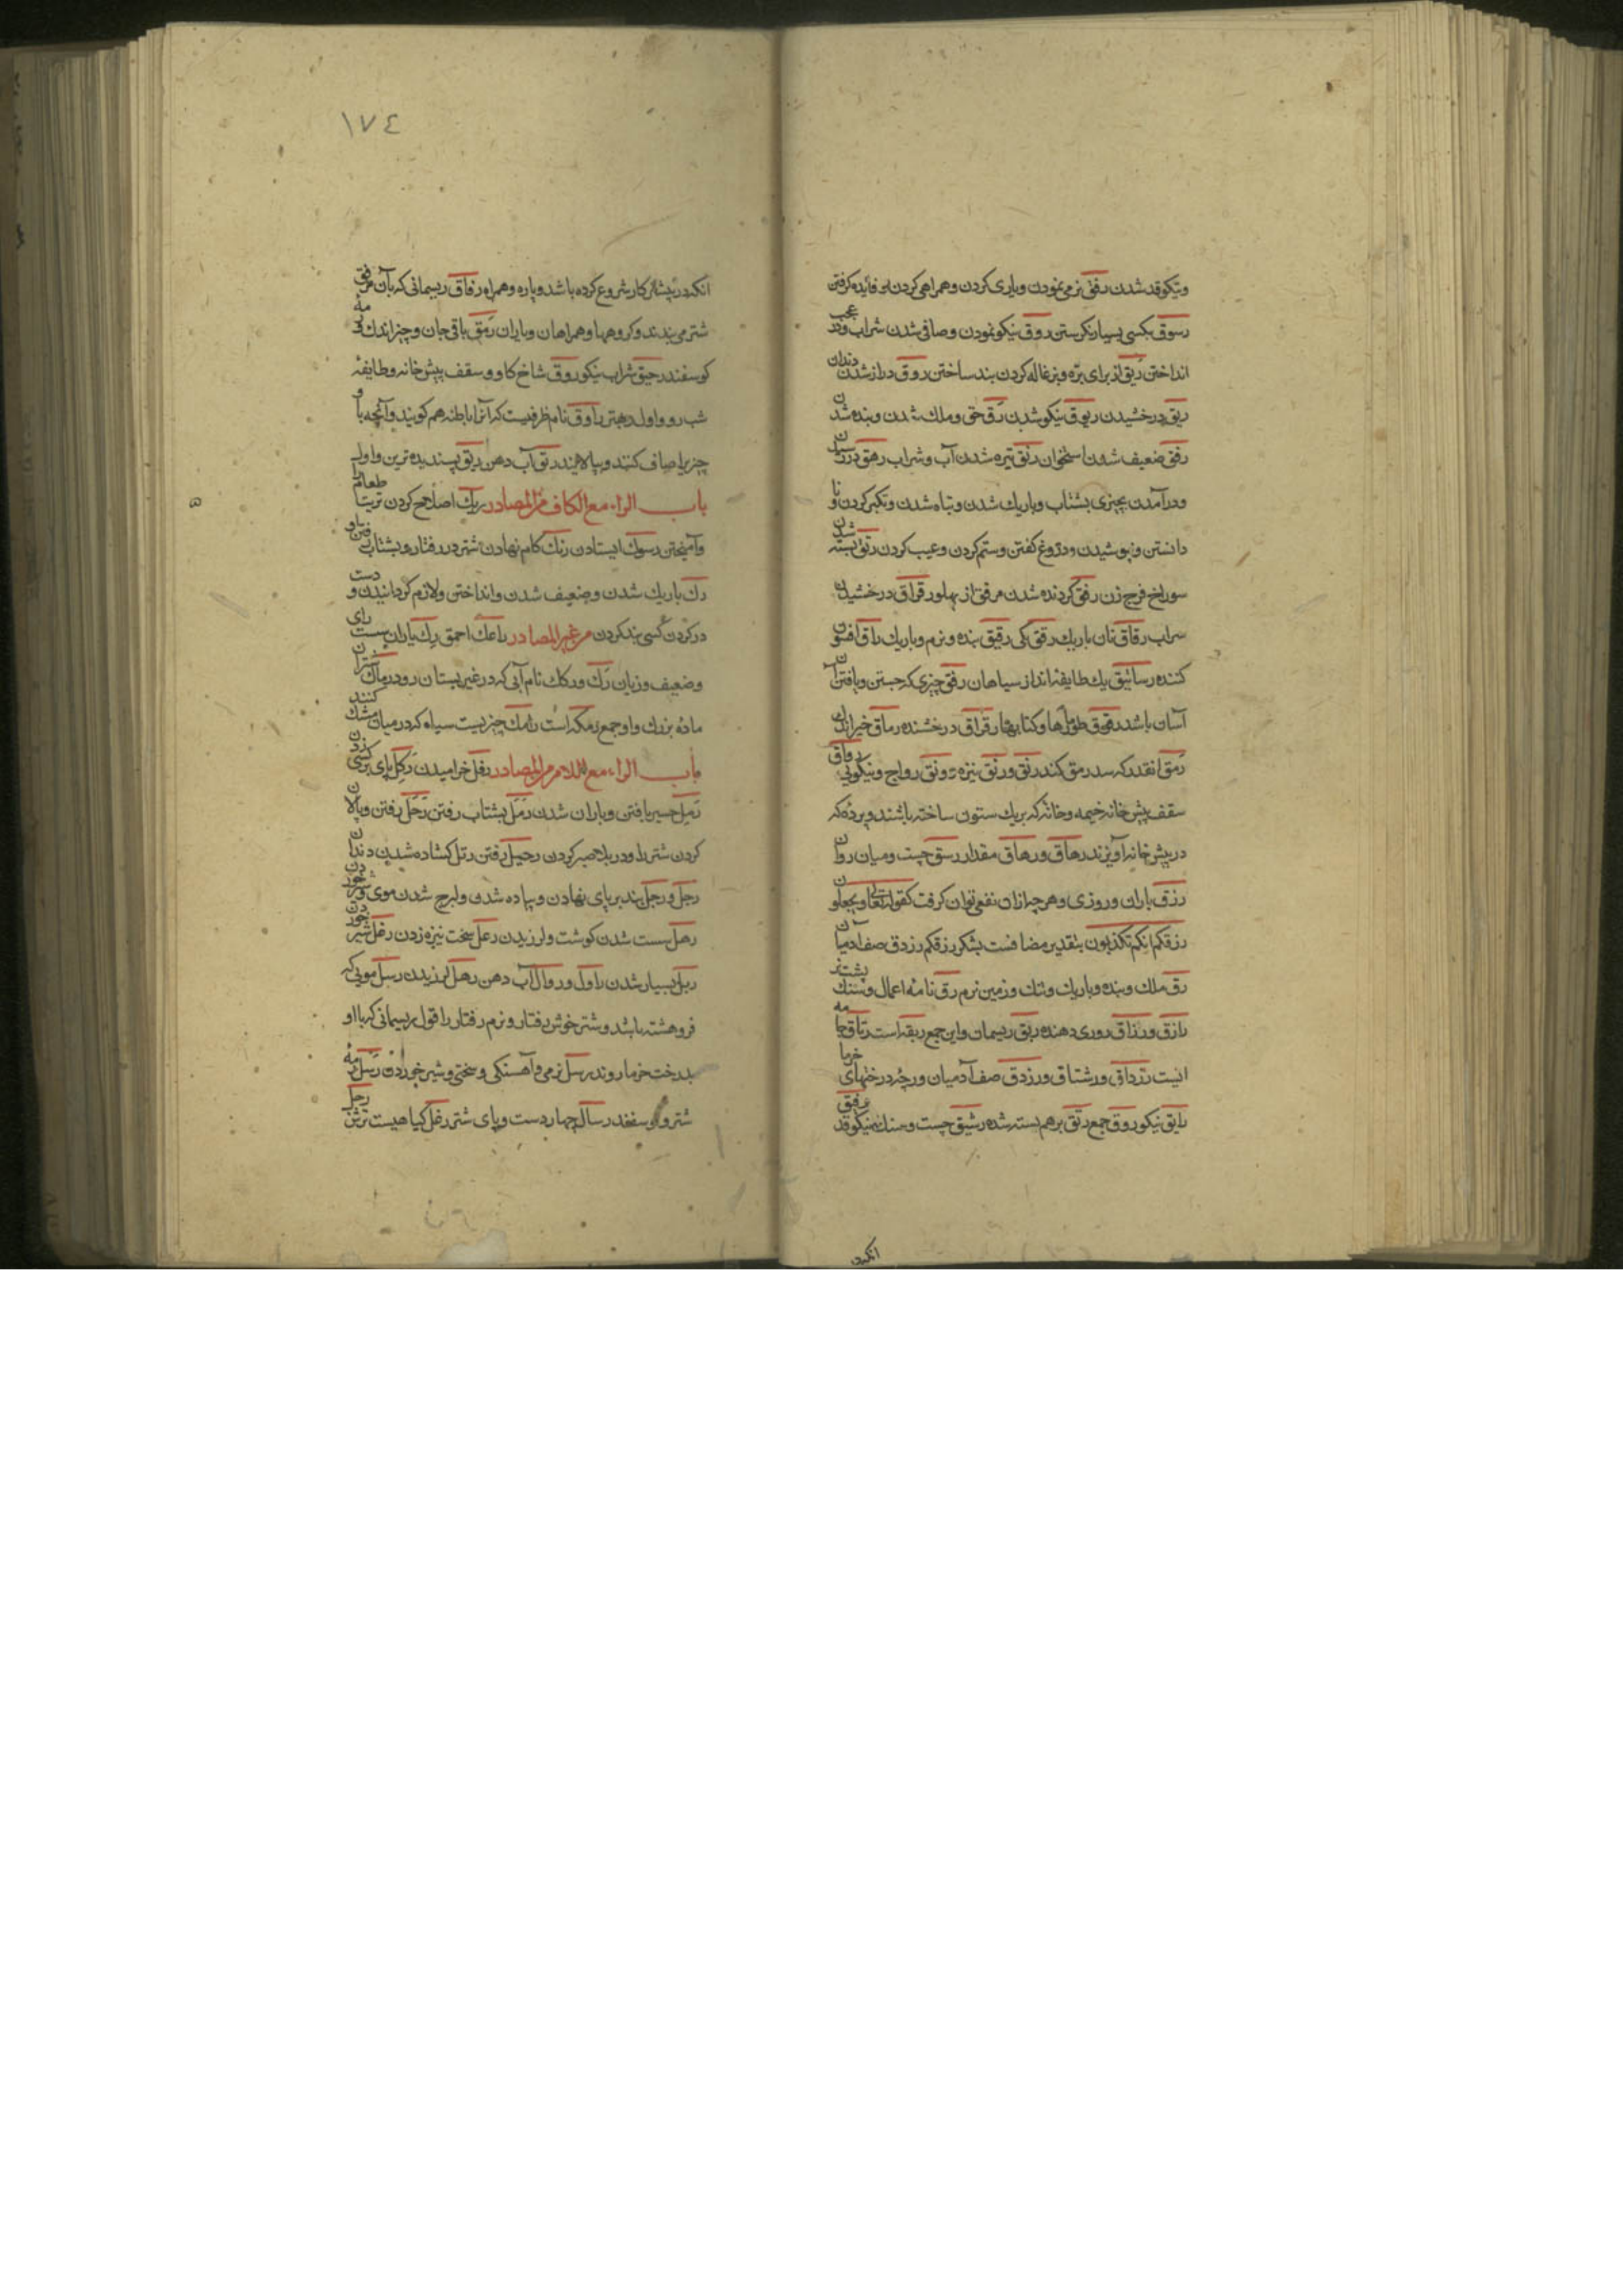 ونیکوقد شدن رفق نرمی نمودن ویاری کردن وهمراهی کردن فایده کرفتن
بکسی بسیار نکرستن روق نیکو نمودن وصافی شدن شراب ودر عجب
انداختن ربق از برای بره وبزغاله کردن بند ساختن روق دراز شدن دندان
ریق درخشیدن ریوق نیکو شدن رق حق وملک شدن وبنده شدن
رقق ضعیف شدن استخوان رنق تیره شدن آب وشراب رهق دررسیدن
ودرآمدن بچیزی بشتاب وباریک شدن وتباه شدن وتکبر کردن ونا
دانستن وپوشیدن ودروغ کفتن وستم کردن وعیب کردن رتق بسته شدن
سوراخ فرج زن رفق کردنده شدن مرفق از پهلو رقراق درخشیدن
سراب رقاق نان باریک رقیق بنده ونرم وباریک راق افسون
کننده یک طایفه انداز سیاهان رفق چیزی که جستن ویافتن آن
آسان باشد طومارها وکتابها رقراق درخشنده رماق خیراندک
رمق انقدر که سد رمق کند رنق ورنق تیره رونق رواج ونیکویی رواق
سقف پیش خانه خیمه وخانه که بریک ستون ساخته باشند وپرده که
درپیش خانه آویزند رهاق ورهاق مقدار رسق چست ومیان روان
رزق باران وروزی وهرچه ازان نفعی توان کرفت کقوله تعالی وتجعلون
رزقکم انکم تکذبون بتقدیر مضافست بشکر رزقکم رزدق صف آدمیان
رق ملک وبنده وباریک وتنک وزمین نرم رق نامه اعمال وسنک پشت
رازق ورزاق روزی دهنده ربق ریسمان واین جمع ربقه است رتاق جامه
ایست رزداق ورشتاق ورزدق صف آدمیان ورجه درختهای خرما
رایق نیکو روق جمع رتق برهم بسته شده رشیق چست نیکوقد رفق
انکه
١٧٤
انکه در پیشانی کار شروع کرده باشد وپاره وهمراه رفاق ریسمانی که بآن مرفق
شتر می بندند وکروهها وهمراهان ویاران رمق باقی جان وچیز اندک
کوسفند رحیق شراب نیکو روق شاخ کاو وسقف پیش خانه وطایفه
شب رو واول بهتر راوق نام ظرفیست که آنرا باطنه هم کویند وآنچه با او
چیزی را صاف کنند وبپالایند ریق آب دهن ریق پسندیده ترین واول
باب الراء مع الکاف من المصادر ربک اصلاح کردن ترتیب طعام
وآمیختن ایستادن رتک کام نهادن شتر در رفتار وبشتاب رفتن او
رک باریک شدن وضعیف شدن وانداختن ولازم کردانیدن ودست
درکردن کسی بند کردن من غیر المصادر راعک احمق رک باران سست
وضعیف وزیان رک ورکک نام آبی که در غیربستان رود رماک شتران
ماده بزرک واو جمع رمکه است رامک چیزیست سیاه که درمیان مشک کنند
باب الراء مع اللام من المصادر رفل خرامیدن رکل پای برکسی زدن
رمل حصیر بافتن وباران شدن رمل بشتاب رفتن رحل رفتن وپالان
کردن شتر را رحیل رفتن رتل کشاده شدن دندان
رجل ورجل بند برپای نهادن وپیاده شدن شدن موی وشیر خوردن
رهل سست شدن کوشت ولرزیدن رعل سخت نیزه زدن رغل شیر خوردن
ربل بسیار شدن راول وروال آب دهن رهل لرزیدن رسل مویی که
فروهشته باشد وشتر خوش رفتار ونرم رفتار راقول ریسمانی که با او
بدرخت خرما روند رسل نرمی وآهستکی وسختی وشیر خوردن رسل رمه
شتر وکوسفند رسال چهار دست وپای شتر رغل کیاهیست ترش رجل